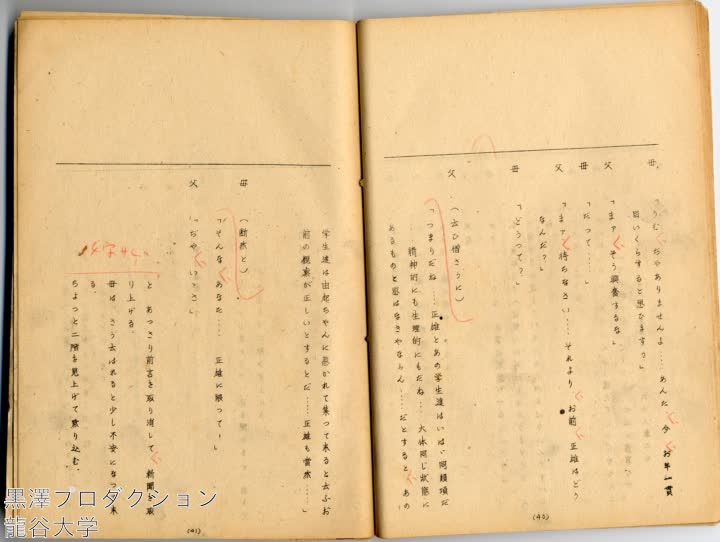 母
「うむ、ぢやありませんよ……あんた、今、お年一貫
目いくらすると思ひます？」
父
「まァ、そう興奮するな」
母
「だつて……」
父
「まァ、待ちなさい……それより、お前、正雄はどう
なんだ？」
母
「どうつて？」
父
（云ひ憎さうに）
「つまりだね……正雄とあの学生達はいはゞ同類項だ
精神的にも生理的にもだね……大体同じ状態に
あるものと思はなきやならん……だとすると、あの
(40)
学生達は由起ちやんに惹かれて集つて来ると云ふお
前の観察が正しいとするとだ……正雄も当然……」
母
（断然と）
「そんな、あなた……正雄に限つて！」
父
「ぢや、いゝさ」
と、あつさり前言を取り消して、新聞を取
り上げる。
母は、さう云はれると少し不安になつて来
る。
ちよつと二階を見上げて黙り込む。
(41)
黒澤プロダクション
龍谷大学